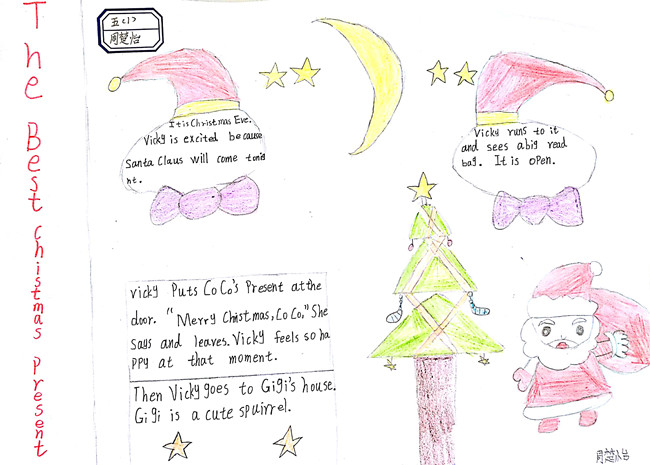 The Best christmas present
五(1)
周楚怡
It is Christmas Eve.
Vicky is excited because
Santa Claus will come toni
ht.
Vicky runs to it
and sees a big read
bag. It is open.
Vicky Puts CoCo's Present at the
door. "Merry Christmas, CoCo." She
says and leaves. Vicky feels so ha
ppy at that moment.
Then Vicky goes to Gigi's house.
Gigi is a cute spuirrel.
周楚怡